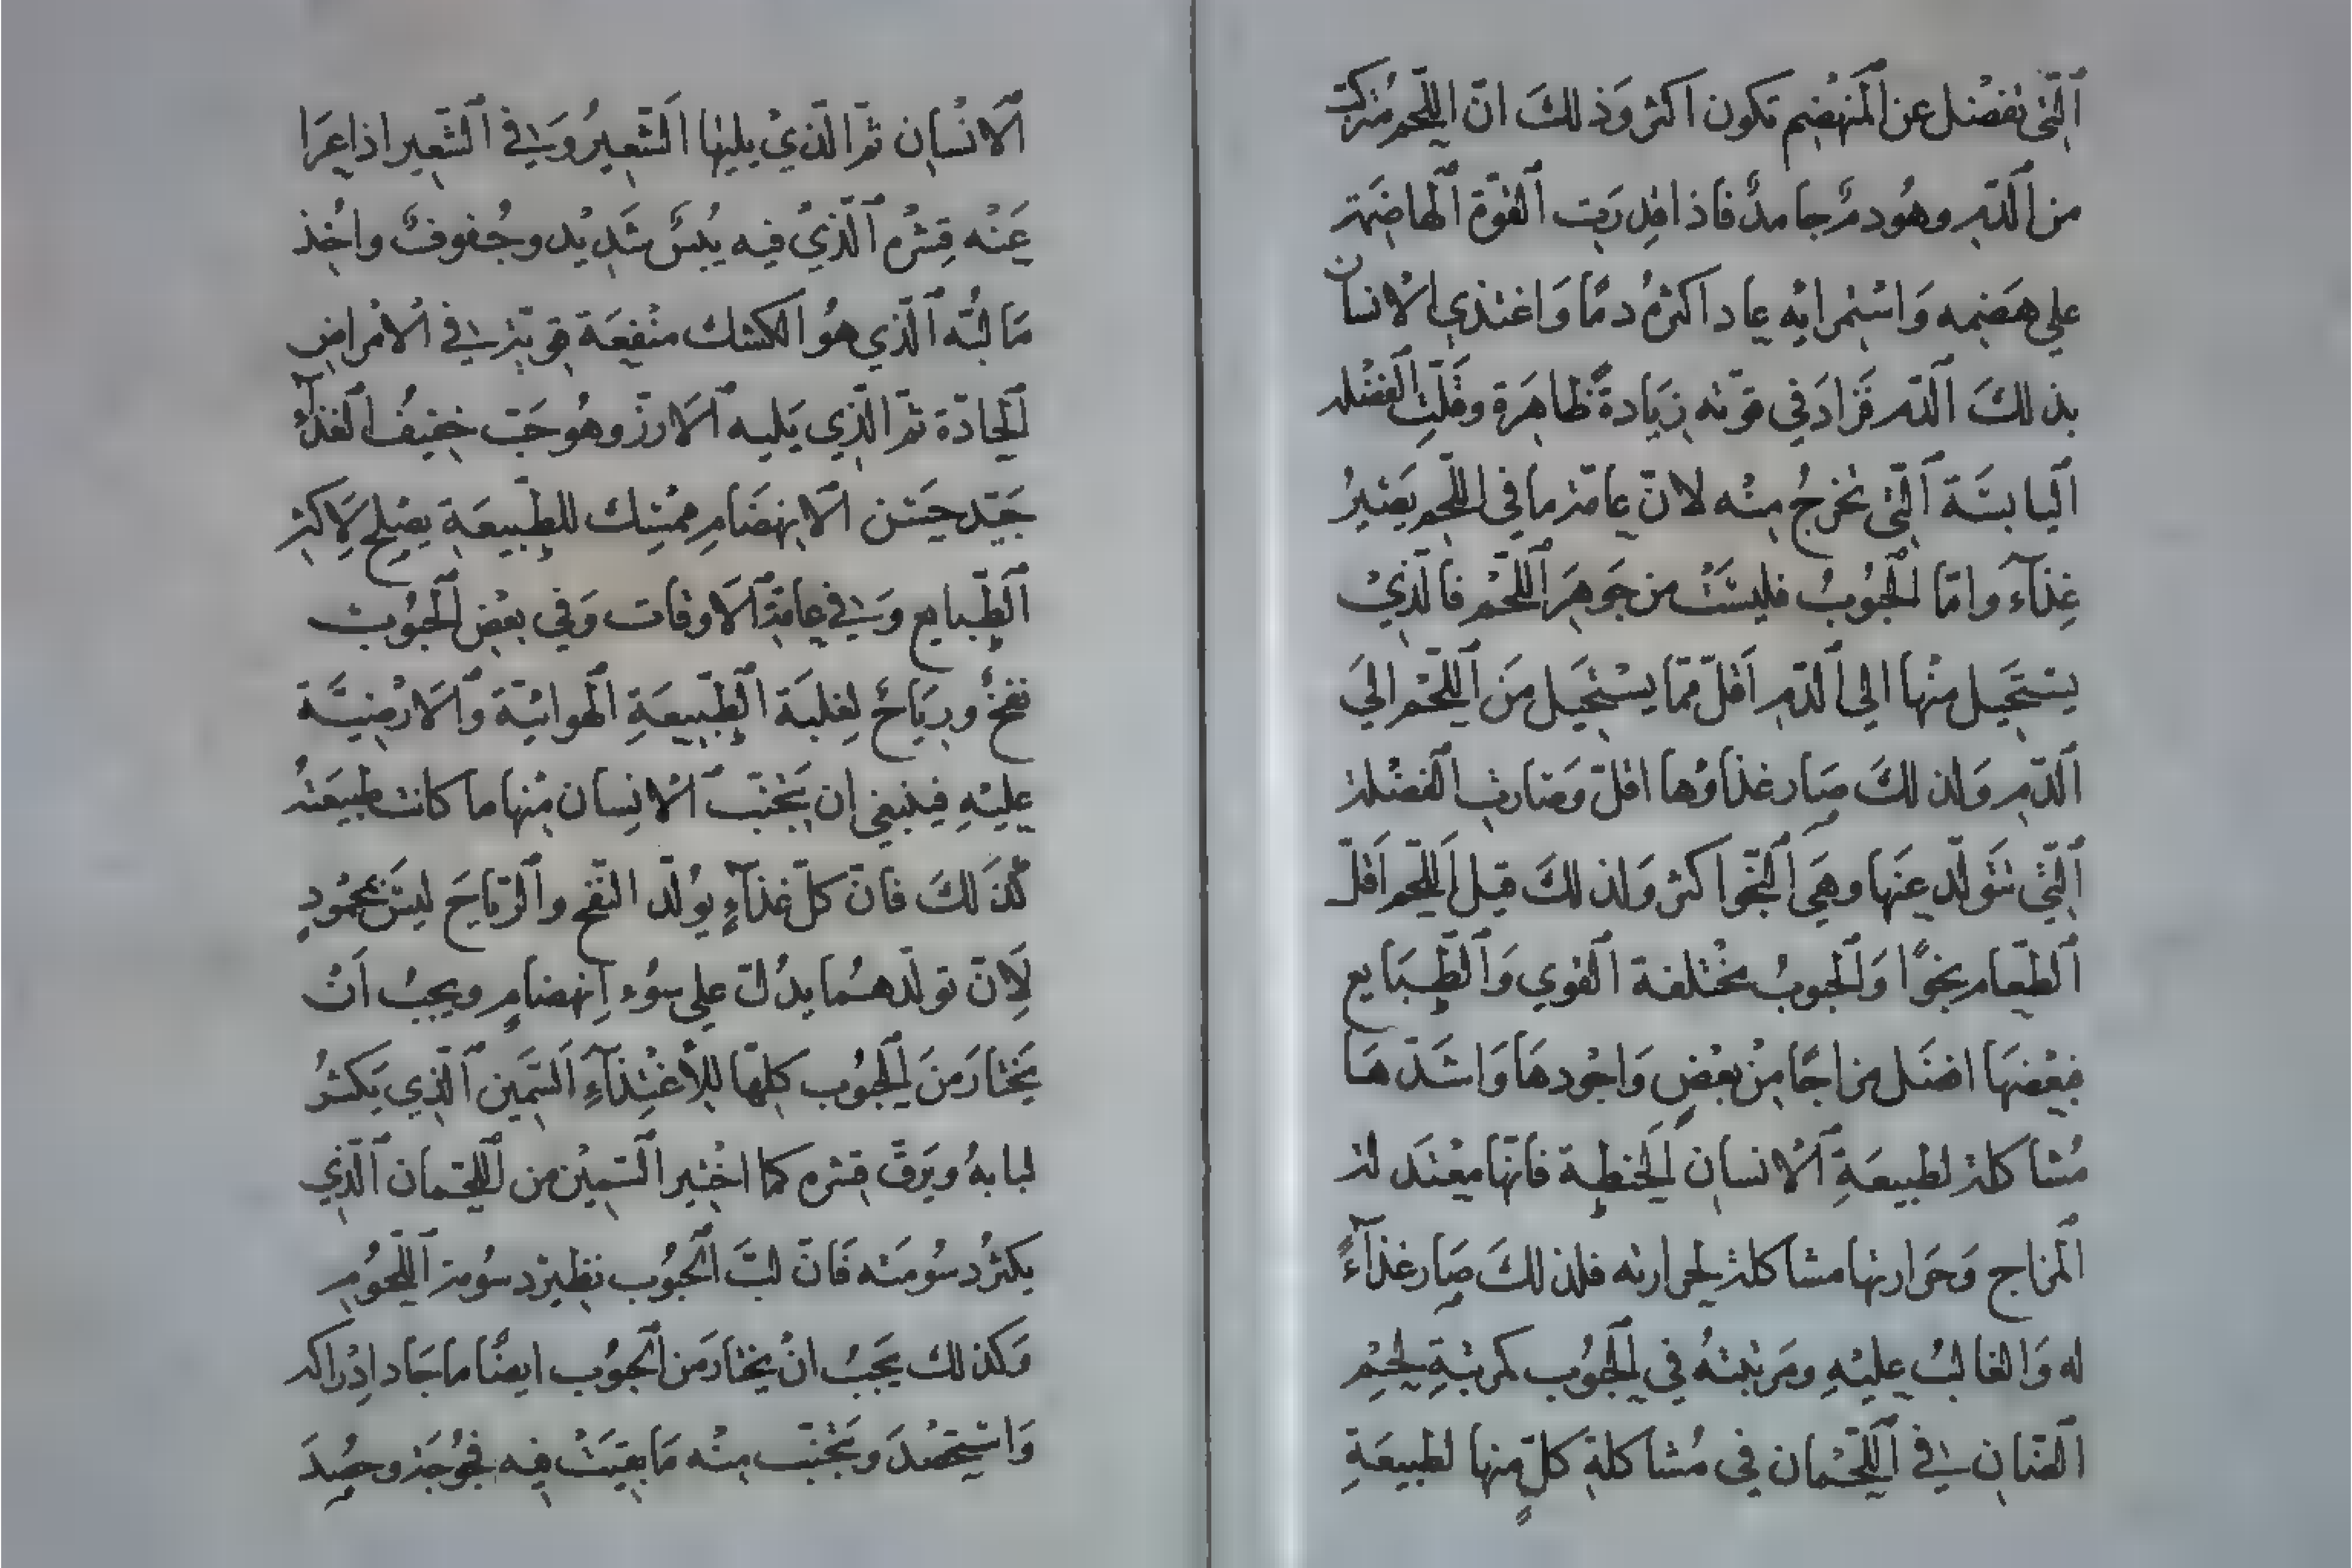 الّتي تفضل عن المنهضم تكون اكثر وذلك انّ اللّحم مُركّب
من الدّم وهُو دمٌ جامدٌ فاذا قدرت القوّة الهاضمة
علي هضمه وَاستمرايه عاد اكثرهُ دمًا وَاغتذي الانسان
بذلكَ الدّم فزادَ في قوّته زيَادةً ظاهرة وقلّت الفضله
اليابسَة الّتي تخرجُ منْه لانّ عامّة ما في اللّحم يَصيرُ
غِذآء وامّا الحُبُوبُ فليسَتْ من جَوهَر اللّحْم فالّذيْ
يستَحيل منْها الي الدّم اَقلّ ممّا يسْتحَيل مَن اللّحْم اليَ
الدّم وَلذلكَ صَار غذاوُها اقلّ وَصَارت الفضْلة
الّتي تتَولّد عنَها وهيَ النّجْوا كثر وَلذلكَ قيل اللّحم اَقلّ
الطّعام نجوًا وَالحبوبُ مختْلفة القوي وَالطّبَايع
فبعْضهَا افضَل مزاجًا منْ بعْضٍ وَاجْودهَا وَاشَدّهَا
مُشاكلة لطبيعَةِ الانسان الحنطِة فانّهَا معْتدَلة
المزاج وَحَرارتها مشاكلة لحرارته فلذلكَ صَار غذآءً
له وَالغالبُ عليْهِ ومَرتبتهُ في الحبُوب كمرتبَةِ لحْم
الضّان في اللّحْمان في مُشاكلة كلٍّ منها لطبيعَةِ
الانْسان ثمّ الّذيْ يليها الشّعيرُ وَفي الشّعير اذا عرَا
عَنْه قشْره الّذيْ فيه يُبسٌ شَديْد وجُفوفٌ واُخذ
مَا لبُّه الّذي هوُ الكشك منْفعَة قويّة في الامْراض
الحَادّة ثمّ الّذي يَليه الارزّ وهُو حَبّ خفيفُ الغذآء
جَيّد حسَن الانهضَام ممْسِك للطّبيعَة يصْلح لِاكثر
الطّبايع وَفي عامَّة الاوقات وَفي بعْض الحبُوب
نفخٌ وريَاحٌ لغلبَة الطّبيعَةِ الهوائيّة وَالارْضيَّة
عليْهِ فينبغي ان يَجْتنبَ الانسان منْها ما كانت طبيعَتهُ
كذَلكَ فانّ كلّ غذآءٍ يوُلّد النّفخ والرّيَاحَ ليسَ بمحْمُودٍ
لِانّ تولّدهُما يدُلّ علي سوُء اِنهضامٍ ويجبُ اَنْ
يَختارَ منَ الحبُوب كلّها للأغتْذآءِ السَّمين الّذي يَكثرُ
لبابهُ ويَرقّ قشره كما اختْير السّميْن من اللّحْمان الّذي
يكثرُ دسُومَته فَانّ لبَّ الحبُوب نظيرْ دسُومة اللّحُوم
وَكذلك يَجبُ انْ يختارَ من الحبُوب ايضًا ما جَاد اِدْراكه
وَاستحْصدَ ويَجْتنّب منْه مَا بقيَتْ فيه فجُوجَة وحصُدَ